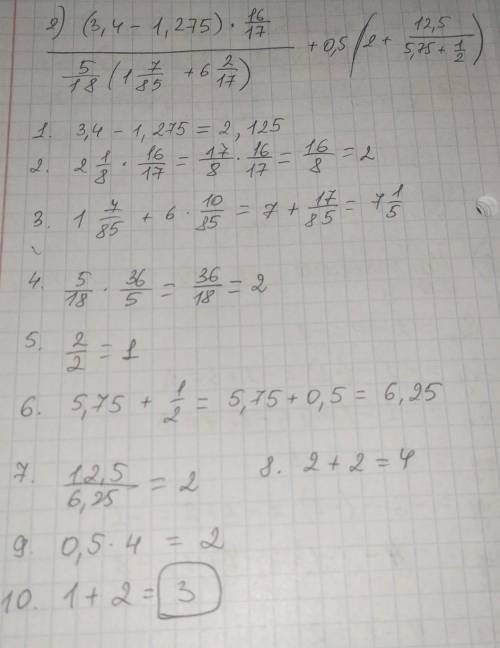 2) (3,4 - 1,275) · 16/17
5/18 (1 7/85 + 6 2/17) + 0,5 (2 + 12,5/(5,75 + 1/2))
1. 3,4 - 1,275 = 2,125
2. 2 1/8 · 16/17 = 17/8 · 16/17 = 16/8 = 2
3. 1 7/85 + 6 · 10/85 = 7 + 17/85 = 7 1/5
4. 5/18 · 36/5 = 36/18 = 2
5. 2/2 = 1
6. 5,75 + 1/2 = 5,75 + 0,5 = 6,25
7. 12,5/6,25 = 2 8. 2 + 2 = 4
9. 0,5 · 4 = 2
10. 1 + 2 = 3